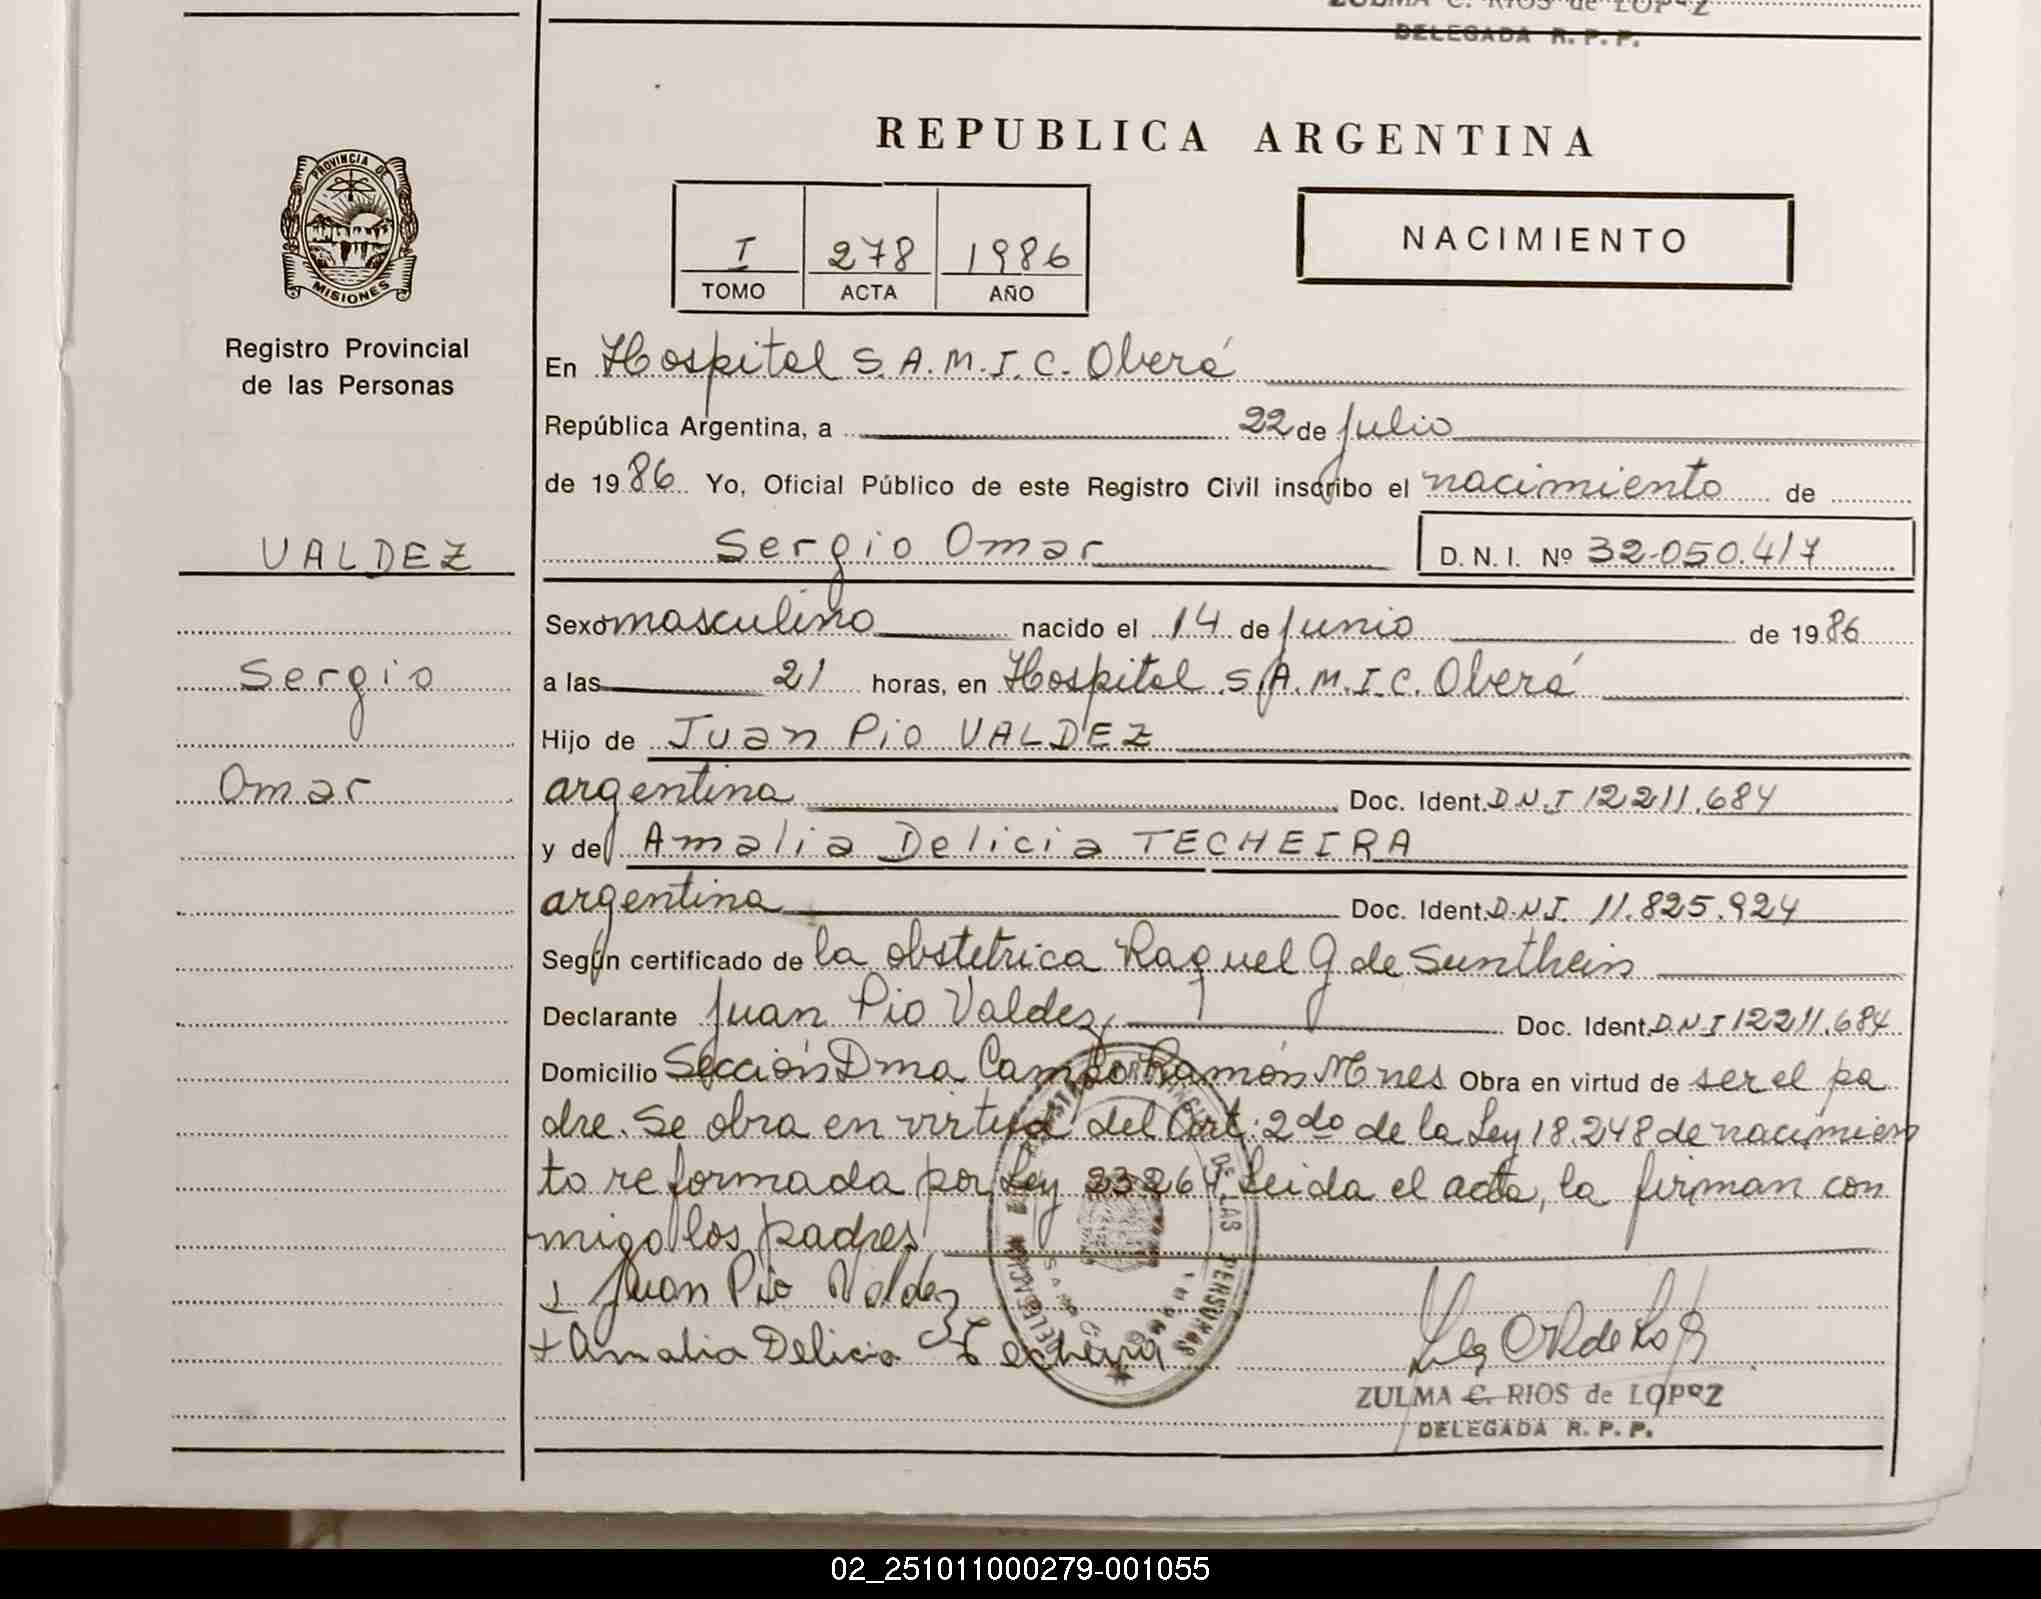 ZULMA C. RIOS de LOPEZ
DELEGADA R. P. P.
REPUBLICA ARGENTINA
PROVINCIA DE
MISIONES
Registro Provincial
de las Personas
I 278 1986
TOMO ACTA AÑO
NACIMIENTO
En Hospital S.A.M.I.C. Oberá
República Argentina, a 22 de julio
de 1986 Yo, Oficial Público de este Registro Civil inscribo el nacimiento de
VALDEZ
Sergio Omar D. N. I. Nº 32.050.417
Sexo masculino nacido el 14 de junio de 1986
Sergio
a las 21 horas, en Hospital S.A.M.I.C. Oberá
Hijo de Juan Pio VALDEZ
Omar
argentina Doc. Ident. D.N.I 12.211.684
y de Amalia Delicia TECHEIRA
argentina Doc. Ident. D.N.I. 11.825.924
Según certificado de la obstetrica Raquel G de Sunthein
Declarante Juan Pio Valdez Doc. Ident. D.N.I 12.211.684
Domicilio Sección Dma Campo Ramón Mnes Obra en virtud de ser el pa
dre. Se obra en virtud del Art. 2do de la Ley 18.248 de nacimien
to reformada por Ley 23264 Leida el acta, la firman con
migo los padres
Juan Pio Valdez
+ Amalia Delicia Techeira
DELEGACION
DE LAS PERSONAS
ZULMA C. RIOS de LOPEZ
DELEGADA R. P. P.
02_251011000279-001055